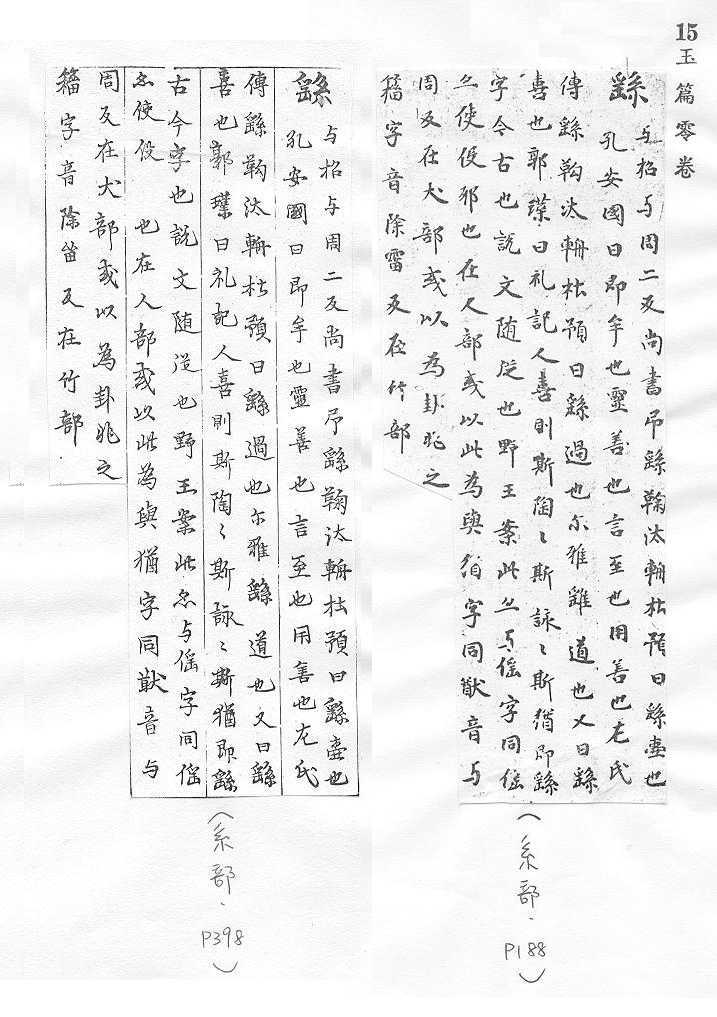 15玉篇零卷
繇
与招与周二反尚書弔繇鞫汰輈杜預曰繇壷也
孔安國曰即牟也靈善也言至也用善也左氏
傳繇鞫汰輈杜預曰繇過也尒雅雞道也又曰繇
喜也郭璞曰礼記人喜則斯陶〻斯詠〻斯猶即繇
字今古也説文随従也野王案此亦与傜字同傜
亦使伇邪也在人部或以此為與猶字同猷音与
周反在犬部或以為卦兆之
籀字音除雷反在竹部
（系部．P188）
繇
与招与周二反尚書弔繇鞫汰輈杜預曰繇壷也
孔安國曰即牟也靈善也言至也用善也左氏
傳繇鞫汰輈杜預曰繇過也尒雅繇道也又曰繇
喜也郭璞曰礼記人喜則斯陶〻斯詠〻斯猶即繇
古今字也説文随従也野王案此亦与傜字同傜
亦使伇也在人部或以此為與猶字同猷音与
周反在犬部或以為卦兆之
籀字音除笛反在竹部
（系部．P398）